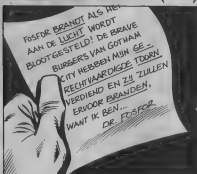 FOSFOR BRANDT ALS HET
AAN DE LUCHT WORDT
BLOOTGESTELD! DE BRAVE
BURGERS VAN GOTHAM
CITY HEBBEN MIJN GE-
RECHTVAARDIGDE TOORN
VERDIEND EN ZIJ ZULLEN
ERVOOR BRANDEN,
WANT IK BEN...
DR. FOSFOR.